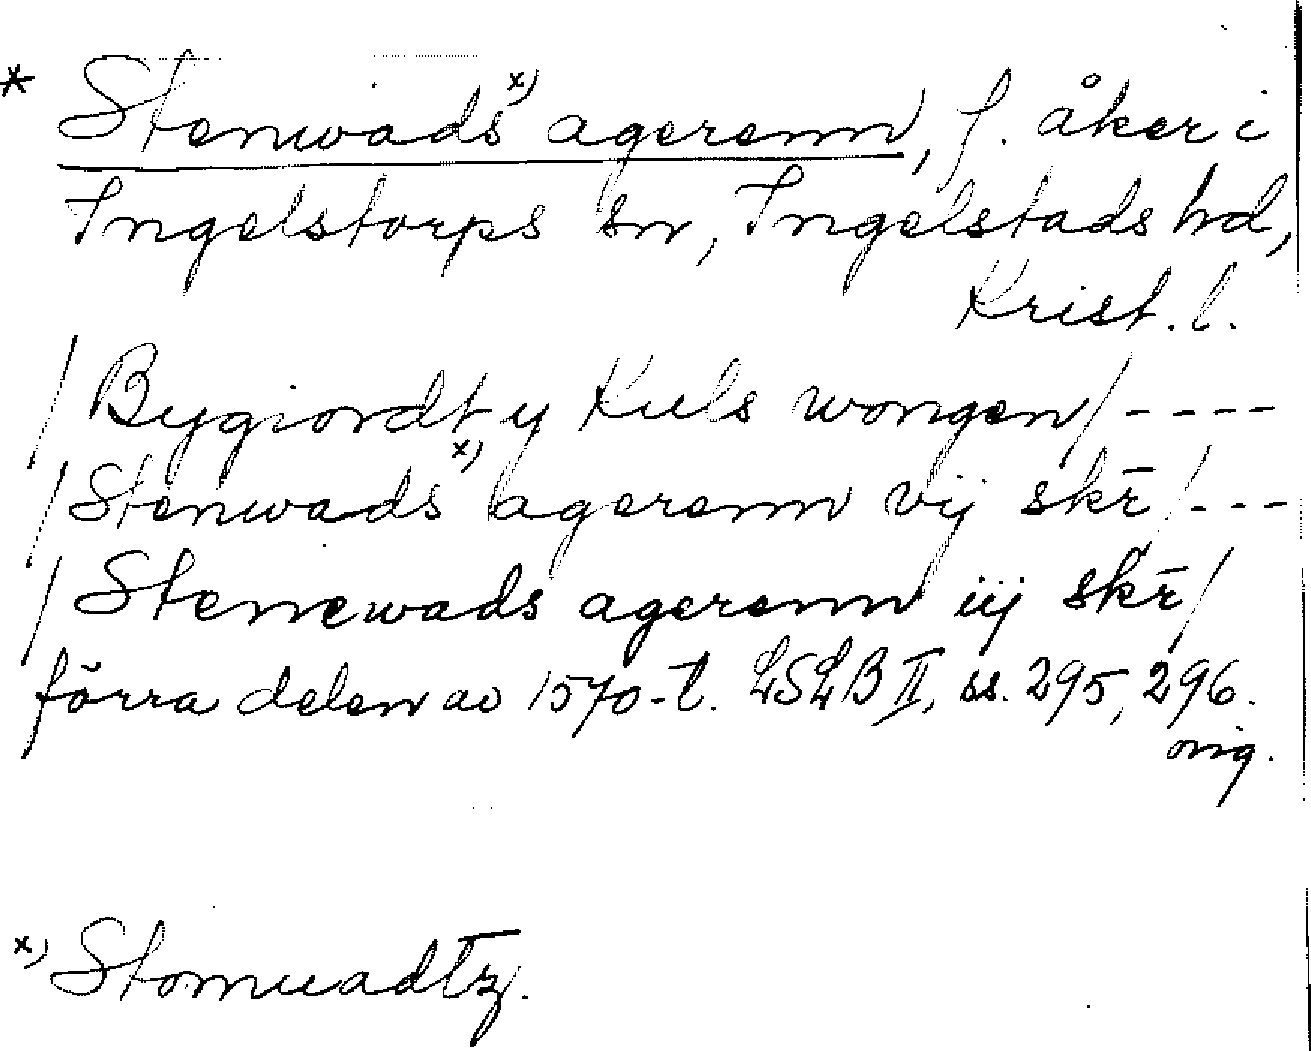 * Stenwads x) agerenn, f. åker i
Ingelstorps sn, Ingelstads hd,
Krist. l.
/Bygiordt y Kuls wongen/----
/Stenwads x) agerenn vij skr̄/---
/Stenewads agerenn iij skr̄/
förra delen av 1570-t. LSLB II, ss. 295, 296.
orig.
x) Stomuadtz.